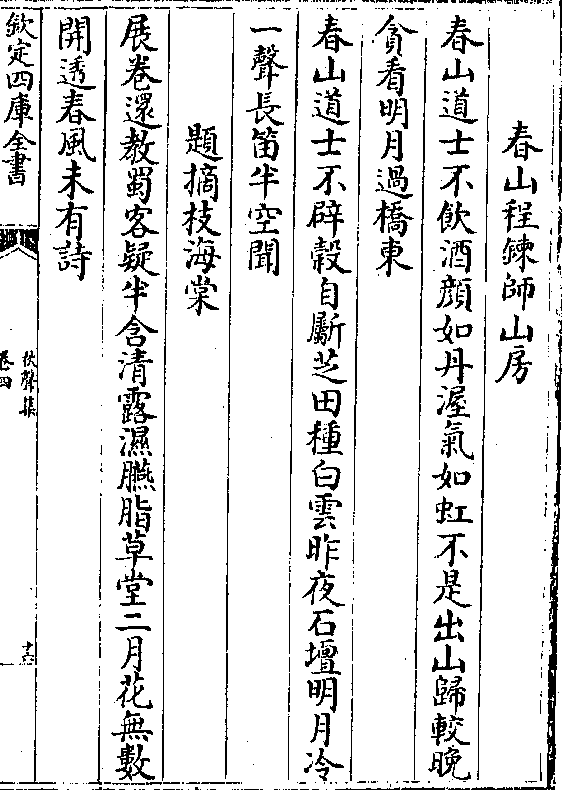 春山程鍊師山房
春山道士不飲酒顔如丹渥氣如虹不是出山歸較晚
貪看明月過橋東
春山道士不辟穀自斸芝田種白雲昨夜石壇明月冷
一聲長笛半空聞
題摘枝海棠
展卷還教蜀客疑半含清露濕臙脂草堂二月花無數
開透春風未有詩
欽定四庫全書
卷四
十六